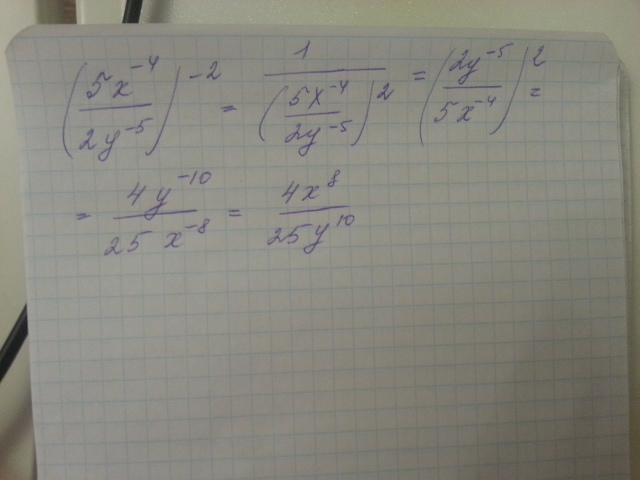 (5x⁻⁴/2y⁻⁵)⁻² = 1/(5x⁻⁴/2y⁻⁵)² = (2y⁻⁵/5x⁻⁴)² =
= 4y⁻¹⁰/25x⁻⁸ = 4x⁸/25y¹⁰